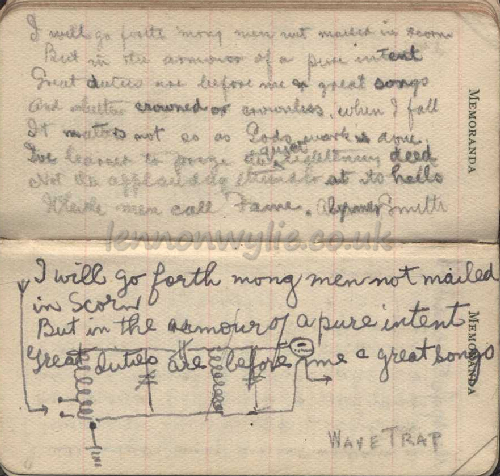 I will go forth 'mong men not mailed in scorn
But in the armour of a pure intent
Great duties are before me & great songs
And whether crowned or crownless, when I fall
It matters not so as Gods work is done.
I've learned to prize the quiet lightning deed
Not the applauding thunder at its heels
Which men call Fame. Smith
MEMORANDA
lennonwylie.co.uk
I will go forth mong men not mailed
in Scorn
But in the armour of a pure intent
Great duties are before me a great songs
MEMORANDA
WAVE TRAP